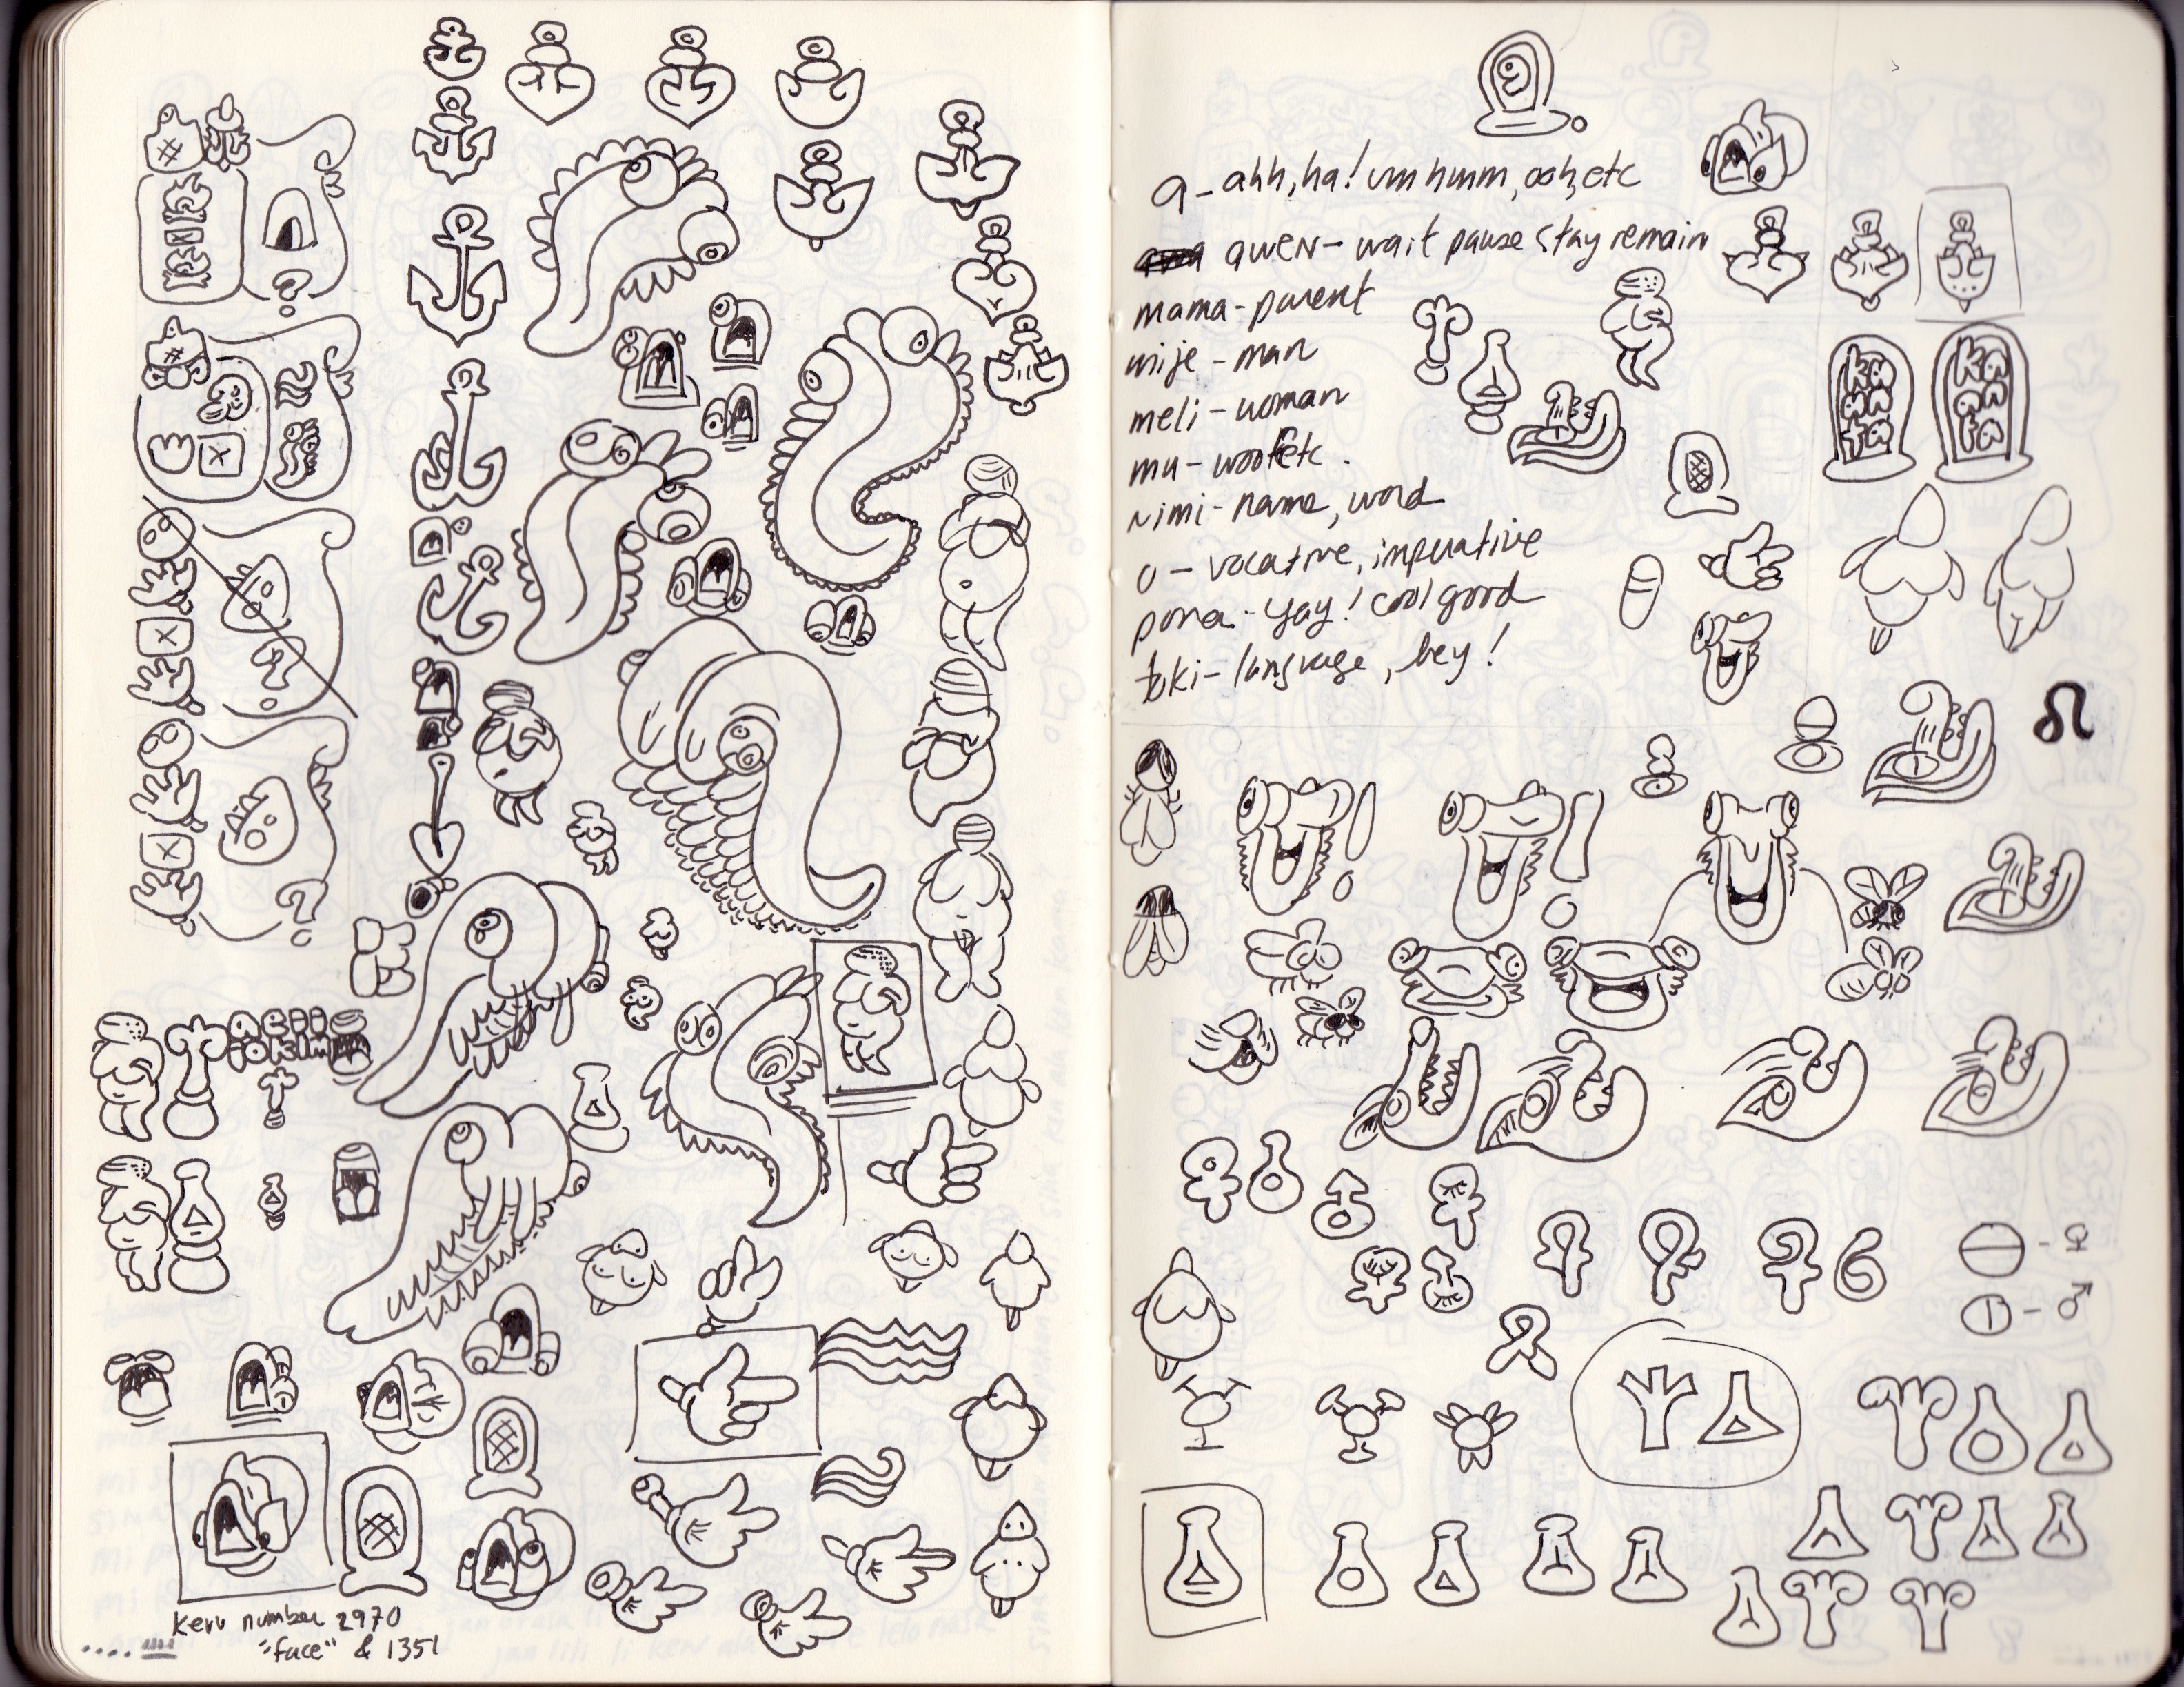 kerr number 2970
"face" & 1351
a - ahh, ha! um hmm, ooh, etc
awen - wait pause stay remain
mama - parent
mije - man
meli - woman
mu - woof etc.
nimi - name, word
o - vocative, imperative
pona - yay! cool good
toki - language, hey!
ka
ma
ta
ka
an
ta
- ♀
- ♂